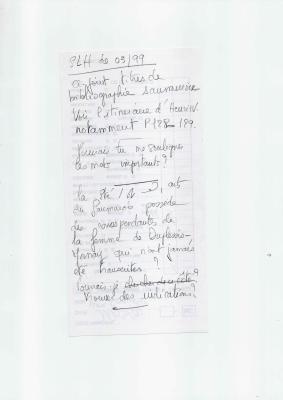 PLH de 03/99
ci joint titres de
bibliographie saumuroise
Voir l'itinéraire d'Henri IV
notamment P188-189.
Pourrais tu me souligner
les mots importants?
La Sté / et , arts
du Saumurois possède
des correspondants de
la femme de Duplessis-
Mornay qui n'ont jamais
été transcrites ?
Pourrais-je chercher de ce côté?
Trouver des indications?